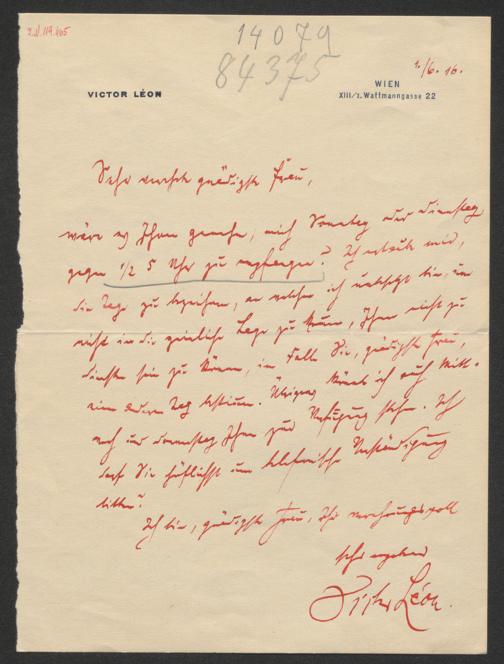 Z.N.119.465
14079
84375
VICTOR LÉON
WIEN
XIII/1. Wattmanngasse 22
1./6. 16.
Sehr verehrte gnädigste Frau,
wäre es Ihnen genehm, mich Sonntag oder Dienstag
gegen 1/2 5 Uhr zu empfangen? Ich erlaube mir,
die Tage zu bezeichnen, an welchen ich unbesetzt bin, um
nicht in die peinliche Lage zu kommen, Ihnen nicht zu
Diensten sein zu können, im Falle Sie, gnädigste Frau,
einen anderen Tag bestimmen. Übrigens könnte ich auch Mitt-
woch und Donnerstag Ihnen zur Verfügung stehen. Ich
darf Sie höflichst um telefonische Verständigung
bitten?
Ich bin, gnädigste Frau, Ihr verehrungsvoll
sehr ergebener
Victor Léon.